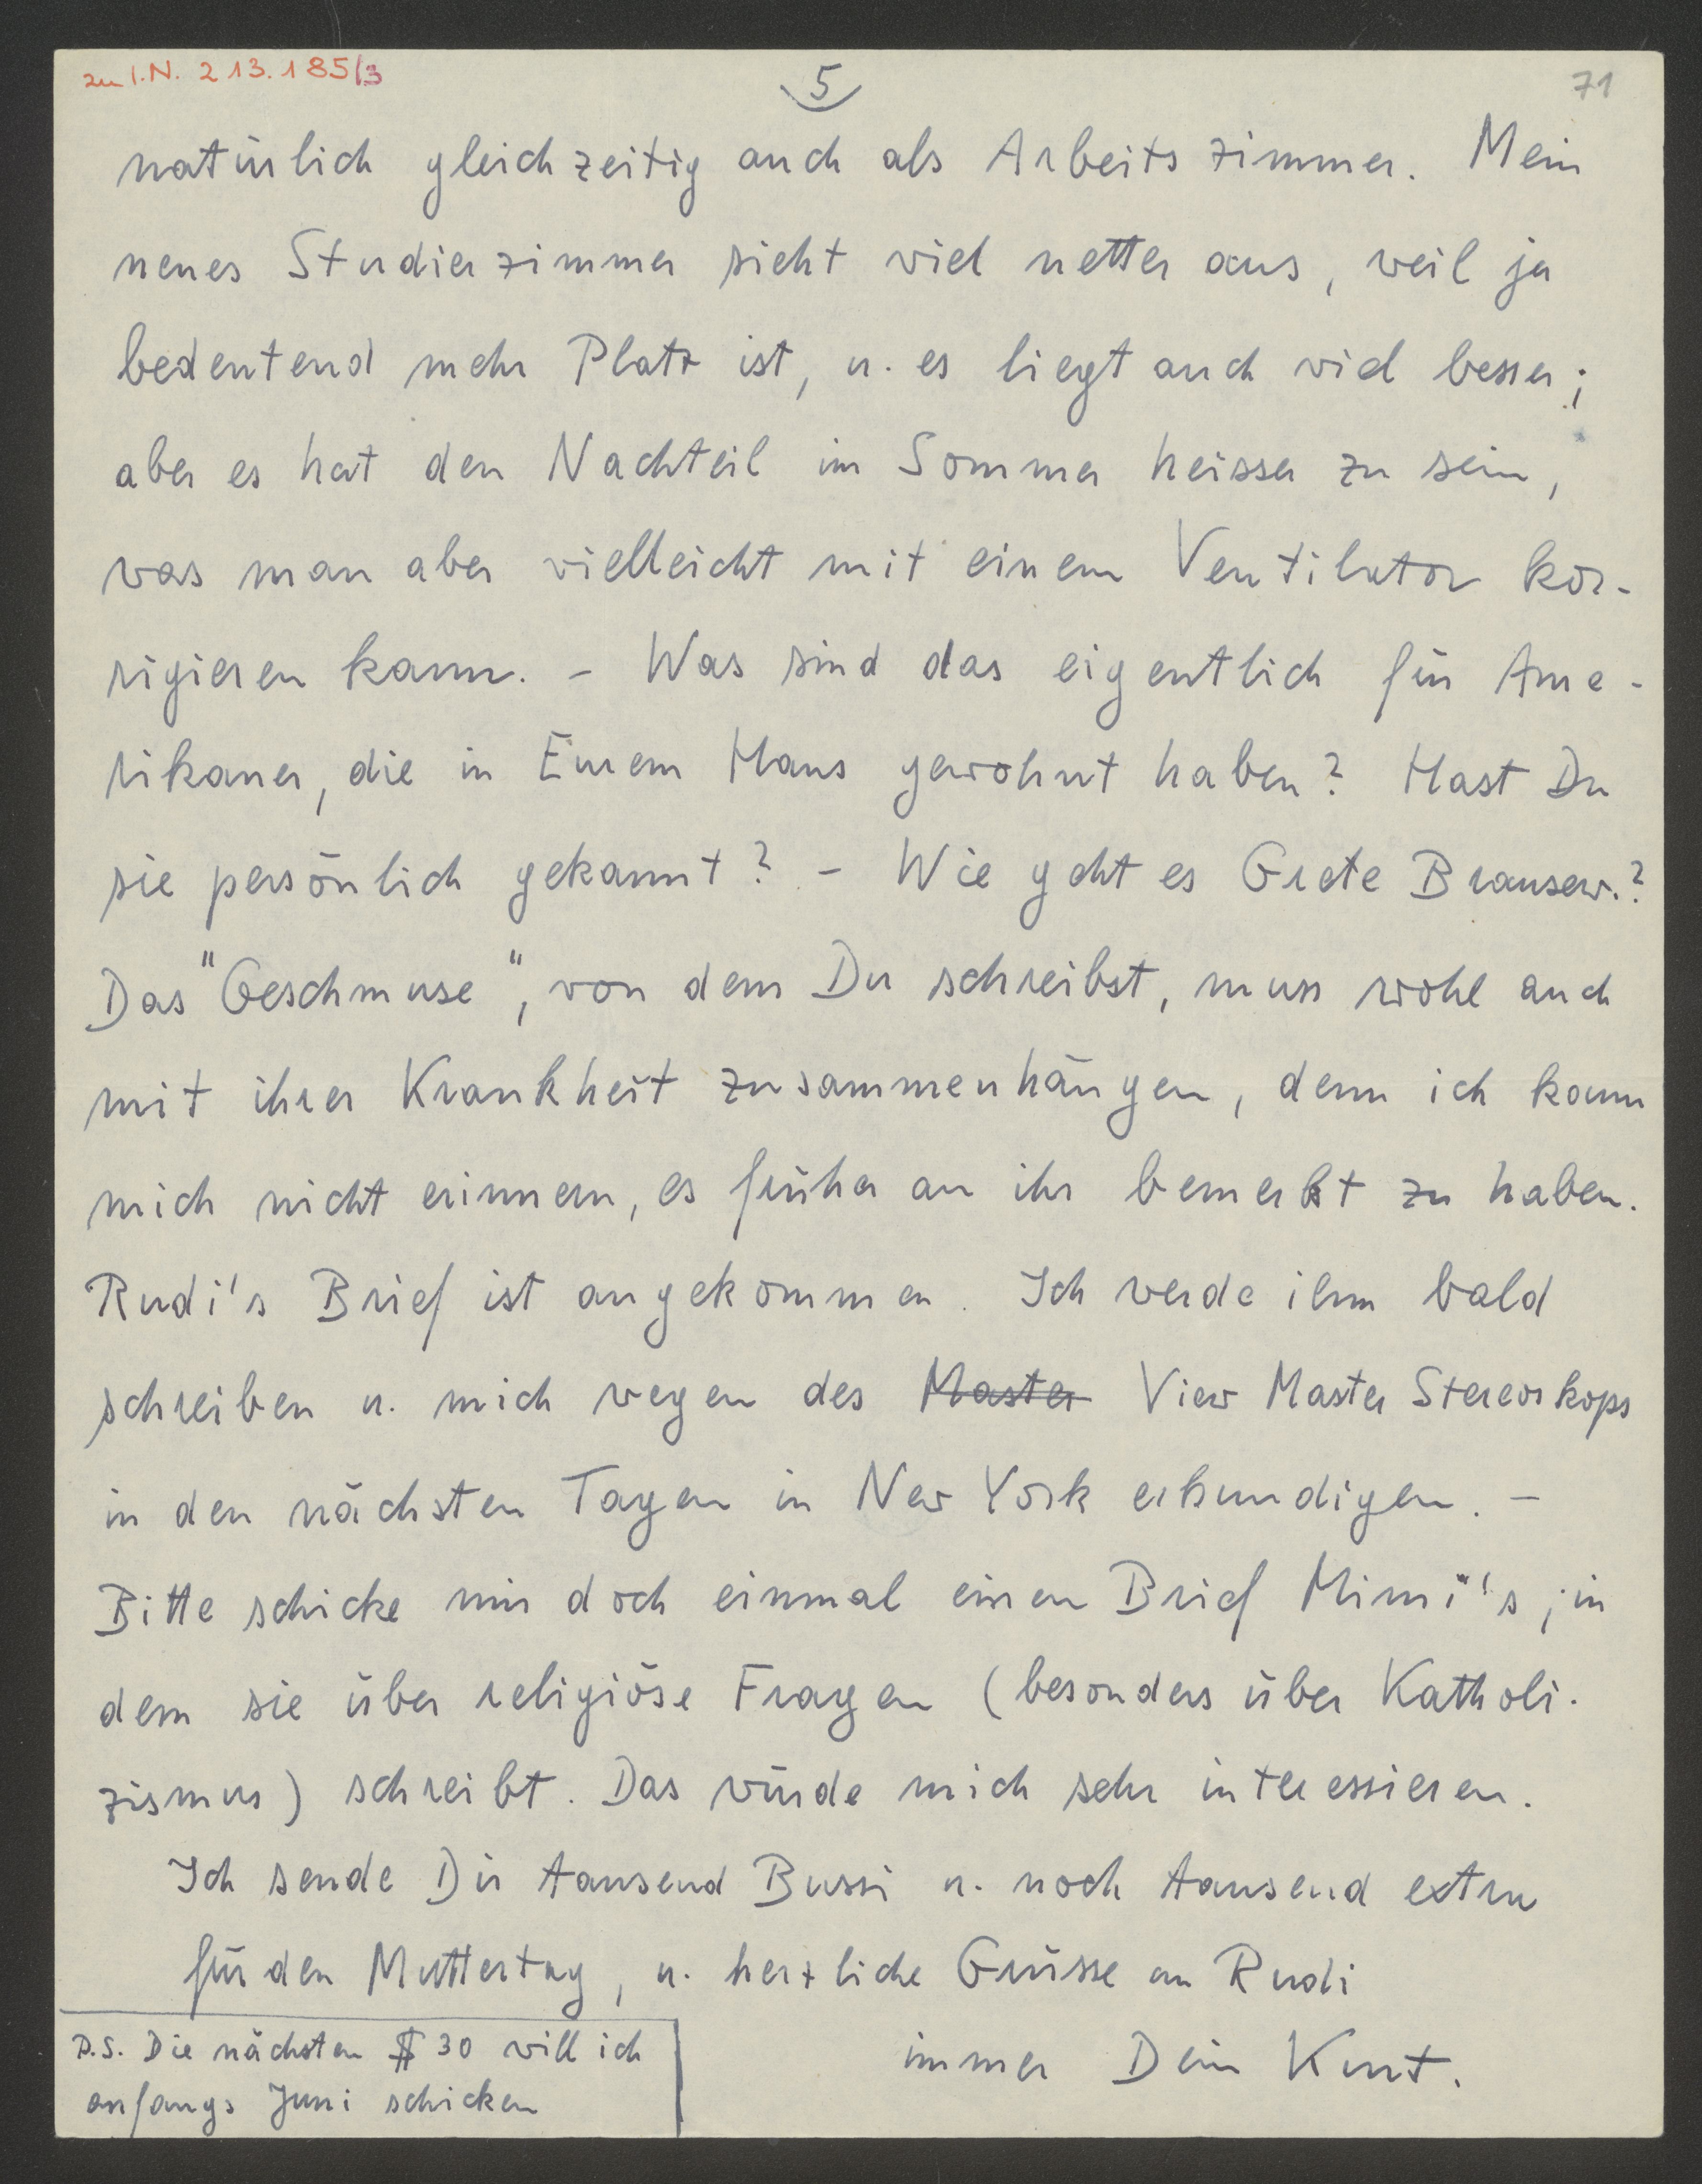 zu I.N. 213.185/3
5
71
natürlich gleichzeitig auch als Arbeitszimmer. Mein
neues Studierzimmer sieht viel netter aus, weil ja
bedeutend mehr Platz ist, u. es liegt auch viel besser;
aber es hat den Nachteil im Sommer heisser zu sein,
was man aber vielleicht mit einem Ventilator kor-
rigieren kann. – Was sind das eigentlich für Ame-
rikaner, die in Eurem Haus gewohnt haben? Hast Du
sie persönlich gekannt? – Wie geht es Grete Brausew.?
Das "Geschmuse", von dem Du schreibst, muss wohl auch
mit ihrer Krankheit zusammenhängen, denn ich kann
mich nicht erinnern, es früher an ihr bemerkt zu haben.
Rudi's Brief ist angekommen. Ich werde ihm bald
schreiben u. mich wegen des Master View Master Stereoskops
in den nächsten Tagen in New York erkundigen. –
Bitte schicke mir doch einmal einen Brief Mimi's, in
dem sie über religiöse Fragen (besonders über Katholi-
zismus) schreibt. Das würde mich sehr interessieren.
Ich sende Dir tausend Bussi u. noch tausend extra
für den Muttertag, u. herzliche Grüsse an Rudi
immer Dein Kurt.
P.S. Die nächsten $ 30 will ich
anfangs Juni schicken